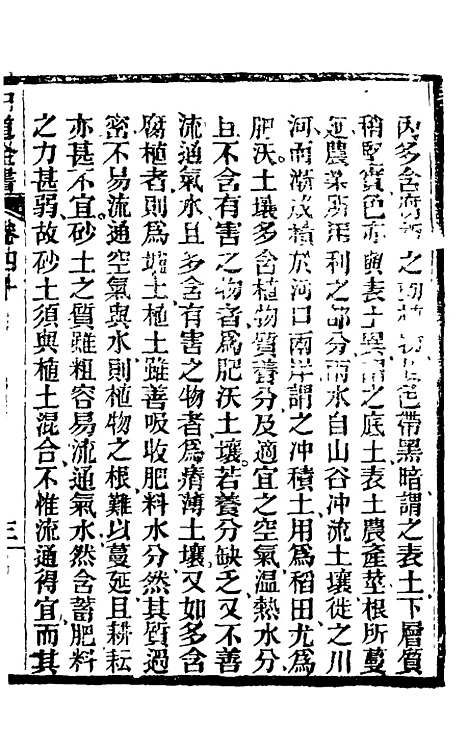 內多含腐之色帶黑暗謂之表土下層質
稍堅實色亦與表土異謂之底土表土農產莖根所蔓
延農業所用利之部分雨水自山谷沖流土壤從之川
河而漸成積於河口兩岸謂之沖積土用為稻田尤為
肥沃土壤多含植物質養分及適宜之空氣溫熱水分
且不含有害之物者為肥沃土壤若養分缺乏又不善
流通氣水且多含有害之物者為瘠薄土壤又如多含
腐植者則為墟土植土雖善吸收肥料水分然其質過
密不易流通空氣與水則植物之根難以蔓延且耕耘
亦甚不宜砂土之質雖粗容易流通氣水然含蓄肥料
之力甚弱故砂土須與植土混合不惟流通得宜而其
全書
卷四十
三